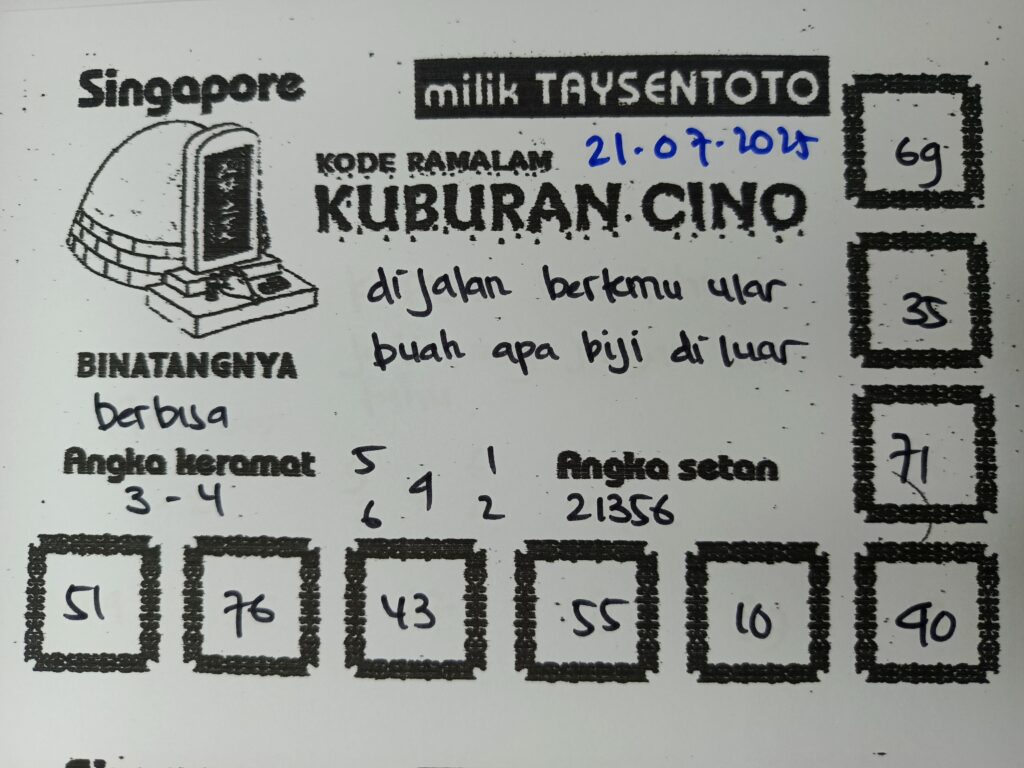 Singapore
milik TAYSENTOTO
21.07.2025
KODE RAMALAM
KUBURAN CINO
dijalan bertemu ular
buah apa biji diluar
BINATANGNYA
berbisa
Angka keramat
3 - 4
5 1
9
6 2
Angka setan
21356
69
35
71
51 76 43 55 10 90